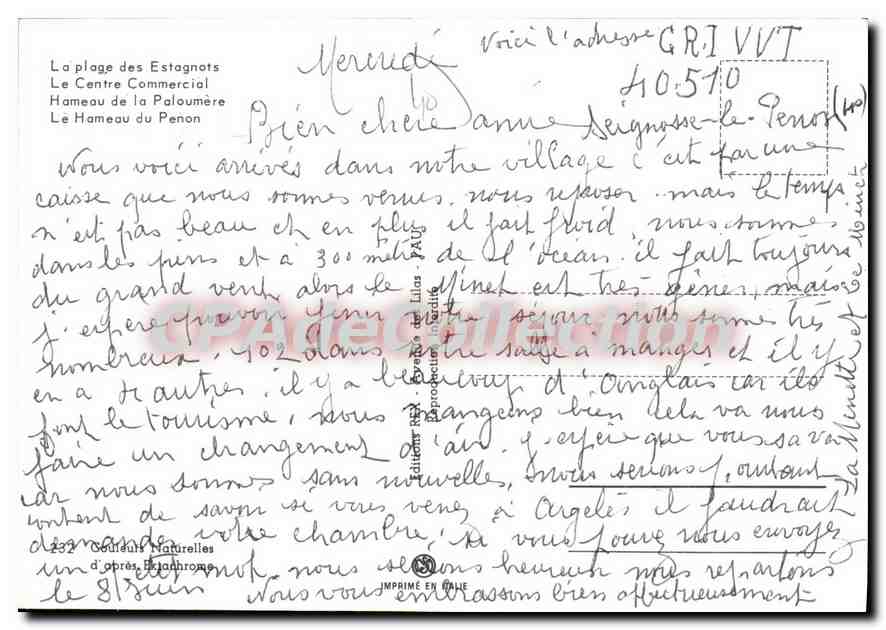 La plage des Estagnots
Le Centre Commercial
Hameau de la Paloumère
Le Hameau du Penon
Mercredi
Voici l'adresse GRI VVT
40.510
Seignosse-le-Penon
Bien chère amie
Nous voici arrivés dans notre village c'est par une
caisse que nous sommes venus nous reposer mais le temps
n'est pas beau et en plus il fait froid nous sommes
dans les pins et à 300 mètres de l'océan. il fait toujours
du grand vent alors le Minet est très gênés, mais
j'espère pouvoir finir notre séjour nous sommes très
nombreux. 102 dans notre salle à manger et il y
en a 4 autres. il y a beaucoup d'Anglais car ils
font le tourisme, nous mangeons bien cela va nous
faire un changement d'air. j'espère que vous sa va
car nous sommes sans nouvelles, nous serions pourtant
content de savoir si vous venez à Argelès il faudrait
demander votre chambre, si vous pouvez nous envoyer
un petit mot, nous serions heureux nous repartons
le 8 juin Nous vous embrassons bien affectueusement
La Minette et le Minet
Editions REX - Avenue des Lilas - PAU
Reproduction Interdite
232 Couleurs Naturelles
d'après Ektachrome
IMPRIMÉ EN ITALIE
CPAdeCollection.com